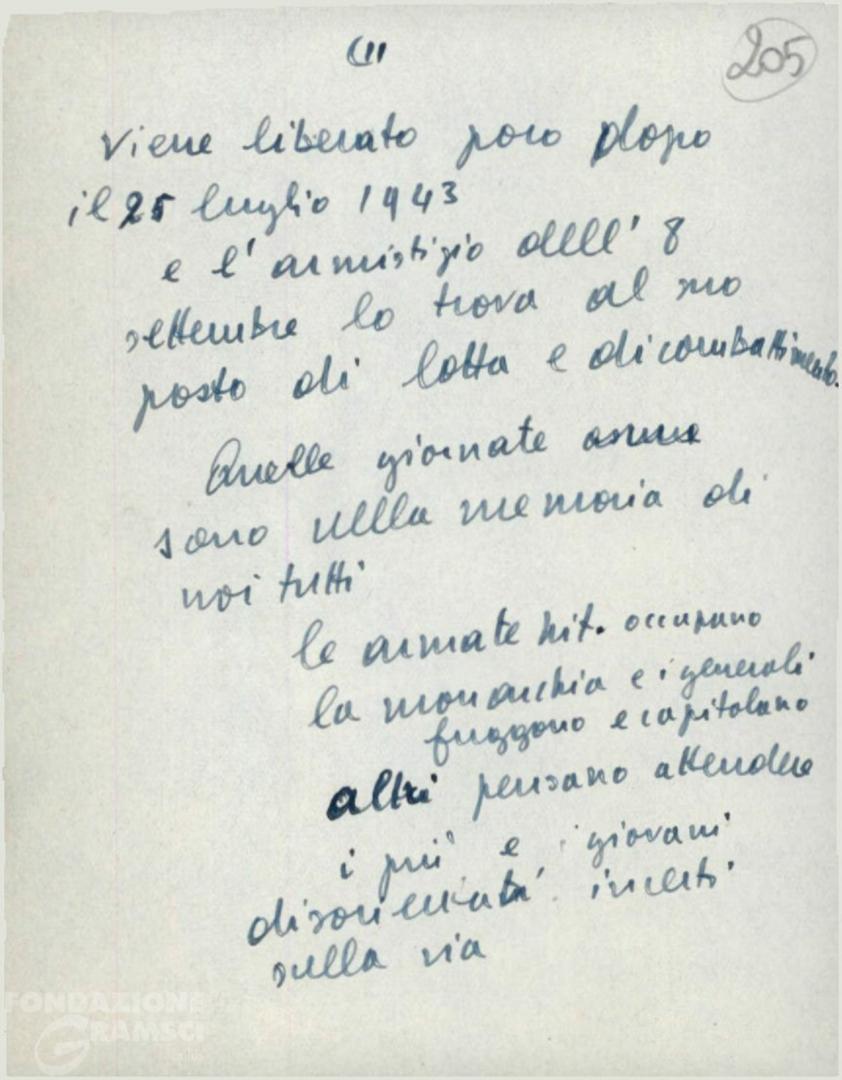 205
viene liberato poco dopo
il 25 luglio 1943
e l'armistizio dell' 8
settembre lo trova al suo
posto di lotta e di combattimento.
Quelle giornate
sono nella memoria di
noi tutti
le armate hit. occupano
la monarchia e i generali
fuggono e capitolano
altri pensano attendere
i più e i giovani
disorientati incerti
sulla via
FONDAZIONE
GRAMSCI